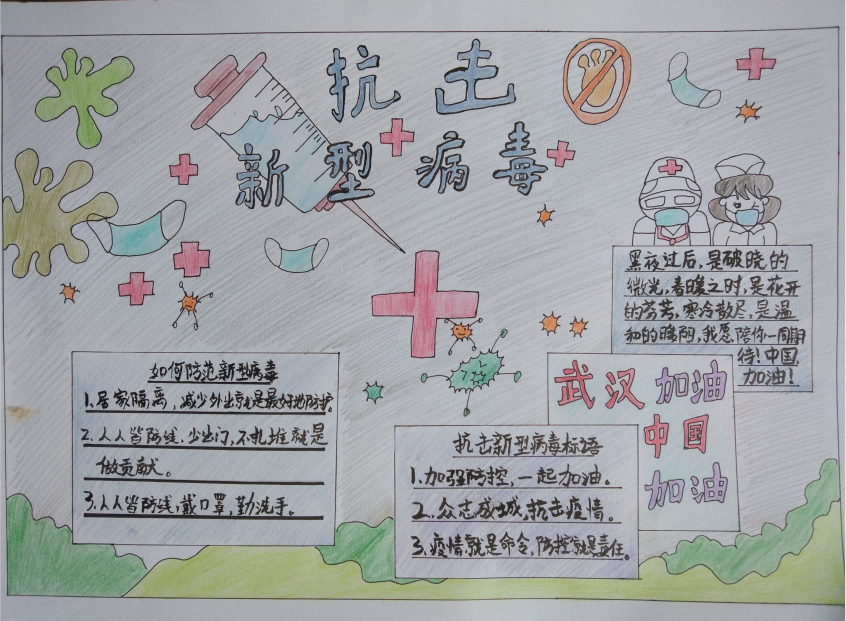 抗击
新型病毒
黑夜过后,是破晓的
微光,春暖之时,是花开
的芬芳,寒冷散尽,是温
和的暖阳,我愿陪你一同期
待!中国,
加油!
如何防范新型病毒
1.居家隔离,减少外出就是最好地防护。
2.人人皆防线.少出门,不扎堆就是
做贡献。
3.人人皆防线,戴口罩,勤洗手。
武汉加油
中国
加油
抗击新型病毒标语
1.加强防控,一起加油。
2.众志成城,抗击疫情。
3.疫情就是命令,防控就是责任。